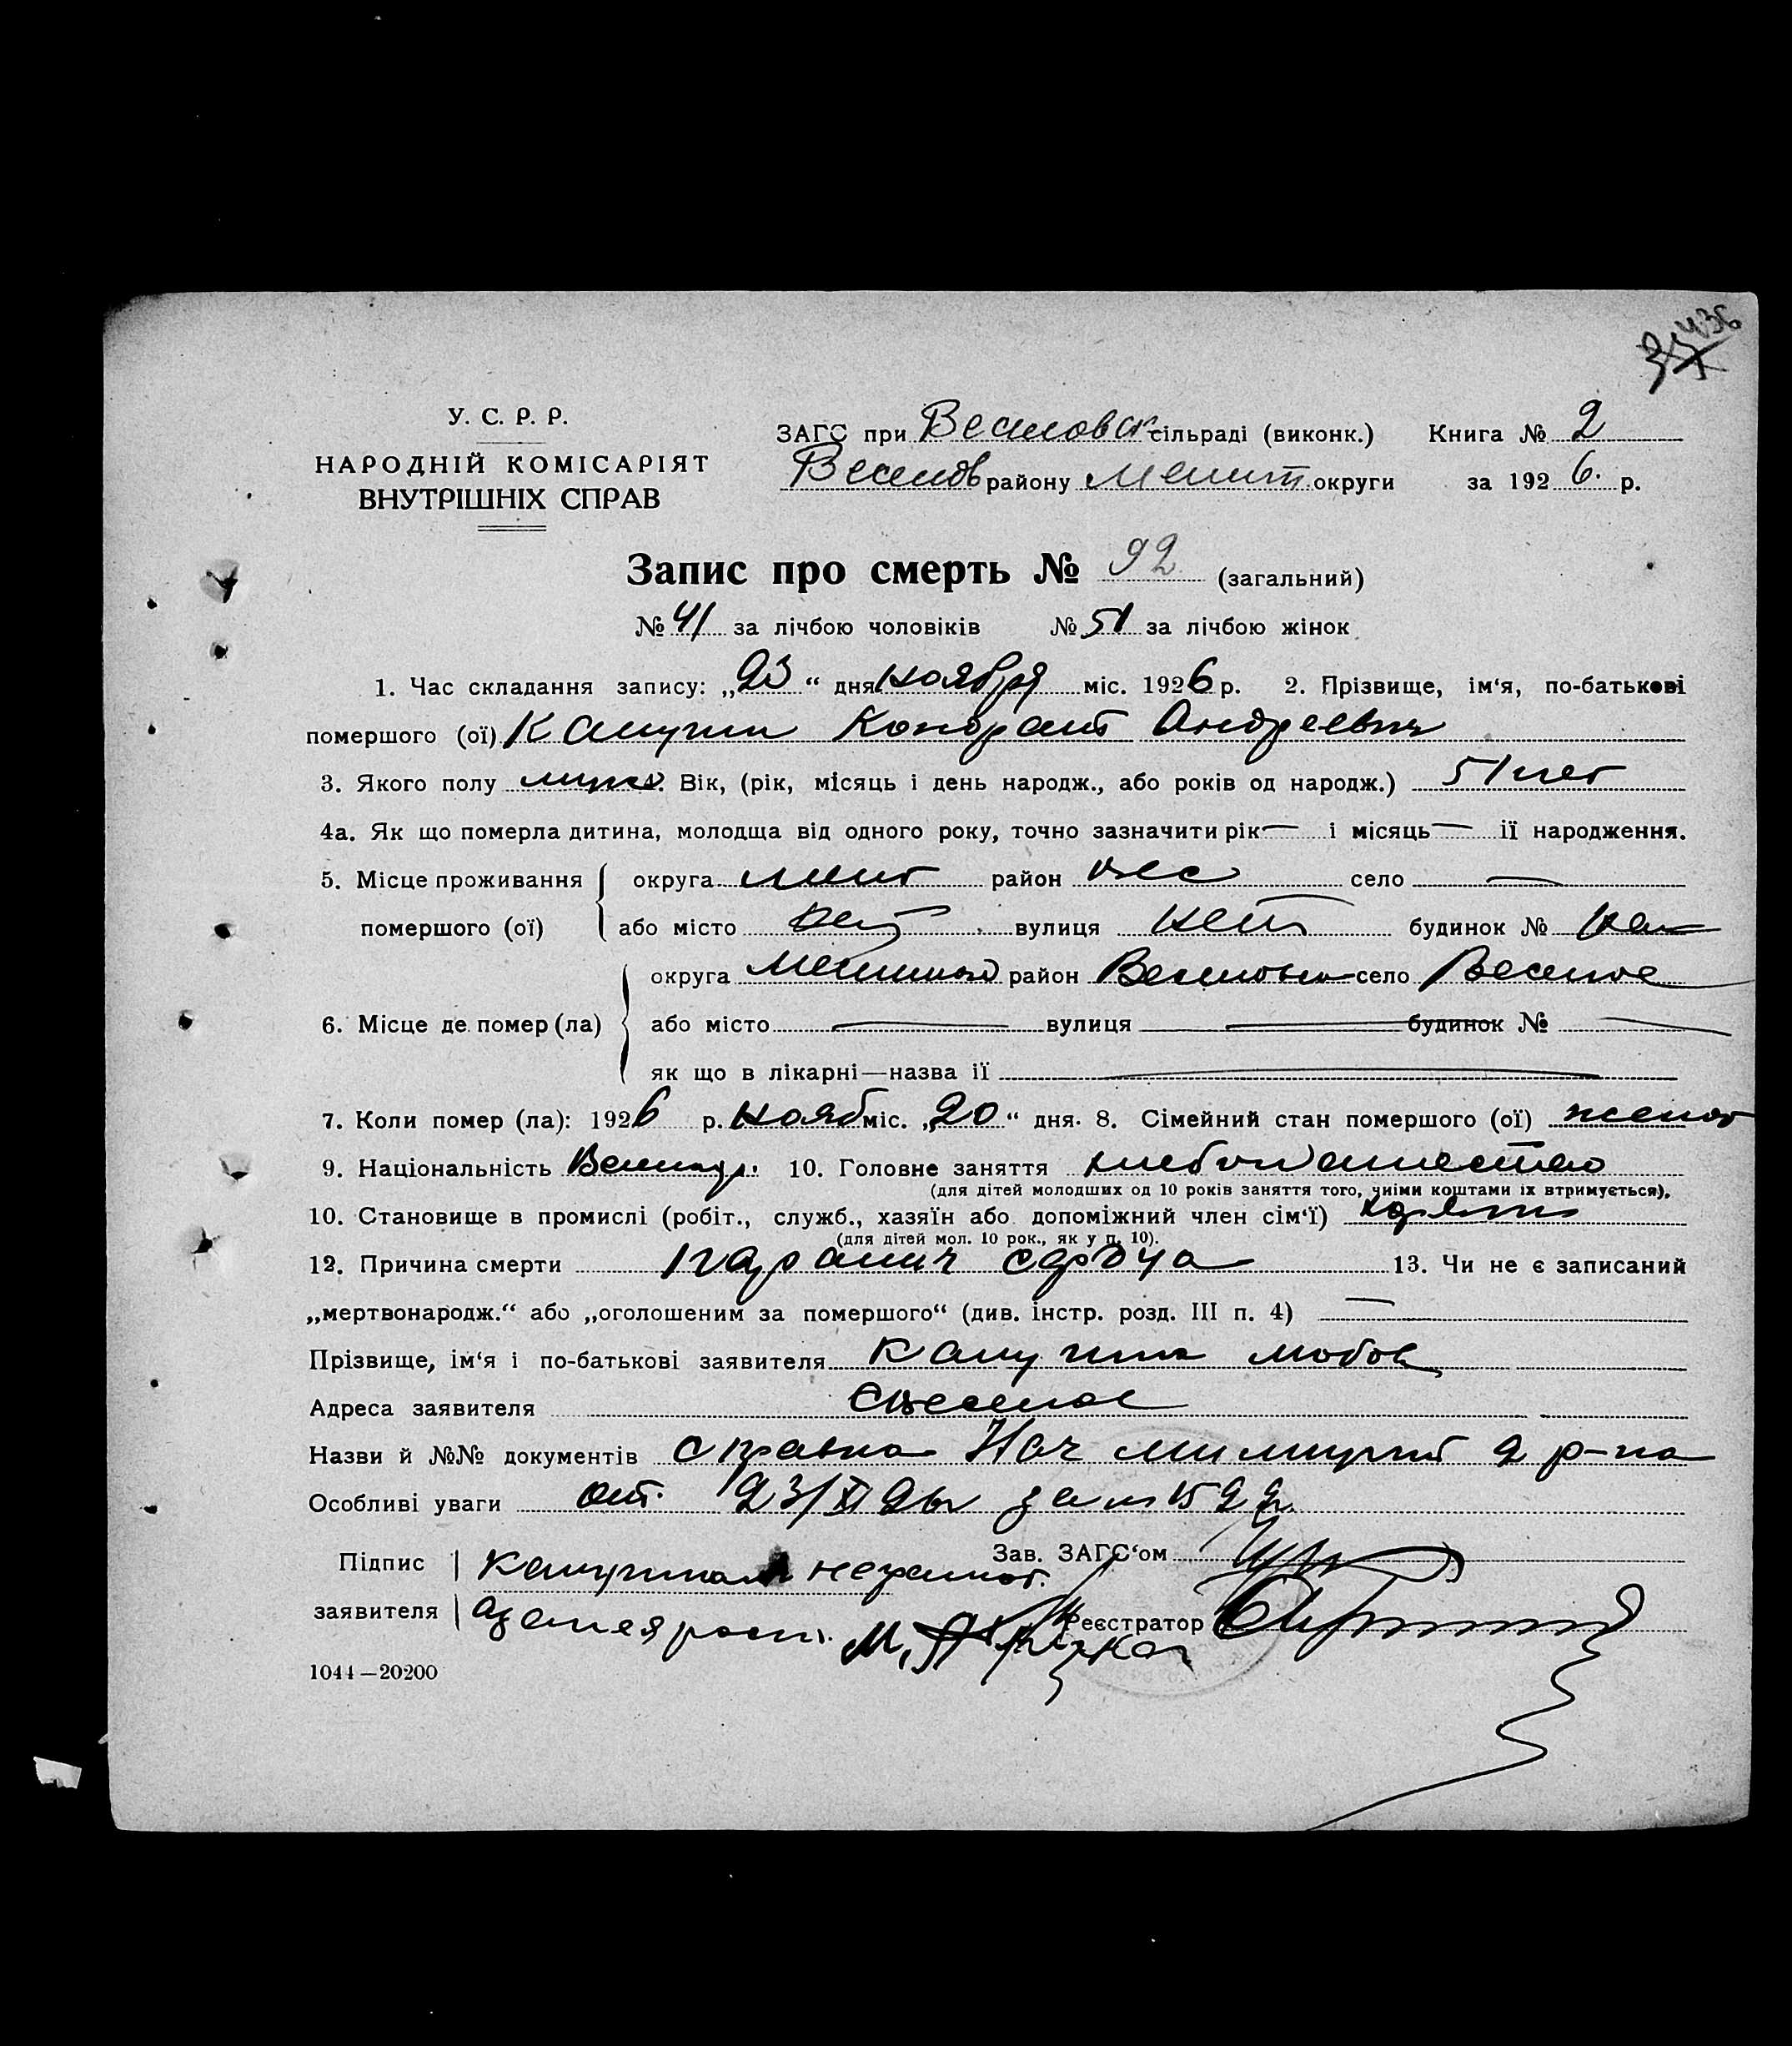 436
У. С. Р. Р.
НАРОДНІЙ КОМІСАРІЯТ
ВНУТРІШНІХ СПРАВ
ЗАГС при Веселовск сільраді (виконк.) Книга № 2
Веселов району Мелит округи за 1926. р.
Запис про смерть № 92 (загальний)
№ 41 за лічбою чоловіків № 51 за лічбою жінок
1. Час складання запису: „23“ дня ноября міс. 1926 р. 2. Прізвище, ім'я, по-батькові
помершого (ої) Андреевич
3. Якого полу муж 4. Вік, (рік, місяць і день народж., або років од народж.) 51 лет
4а. Як що померла дитина, молодща від одного року, точно зазначити рік — і місяць — ії народження.
5. Місце проживання помершого (ої) округа мелит район вес село —
або місто нет вулиця нет будинок № нет
6. Місце де помер (ла) округа Мелитоп район Веселовск село Веселое
або місто — вулиця — будинок № —
як що в лікарні—назва ії —
7. Коли помер (ла): 1926 р. нояб міс. „20“ дня. 8. Сімейний стан помершого (ої) женат
9. Національність Великор. 10. Головне заняття хлебопашество
(для дітей молодших од 10 років заняття того, чиїми коштами їх втримується).
10. Становище в промислі (робіт., служб., хазяїн або допоміжний член сім‘ї) хозяин
(для дітей мол. 10 рок., як у п. 10).
12. Причина смерти паралич сердца 13. Чи не є записаний
„мертвонародж.“ або „оголошеним за помершого“ (див. інстр. розд. III п. 4) —
Прізвище, ім‘я і по-батькові заявителя Любов
Адреса заявителя с Веселое
Назви й №№ документів справка Нач милиции 2 р-на
Особливі уваги от 23/XI 26 за №
Підпис заявителя неграмот.
Зав. ЗАГС‘ом
за нея расп.
Реєстратор
1044—20200